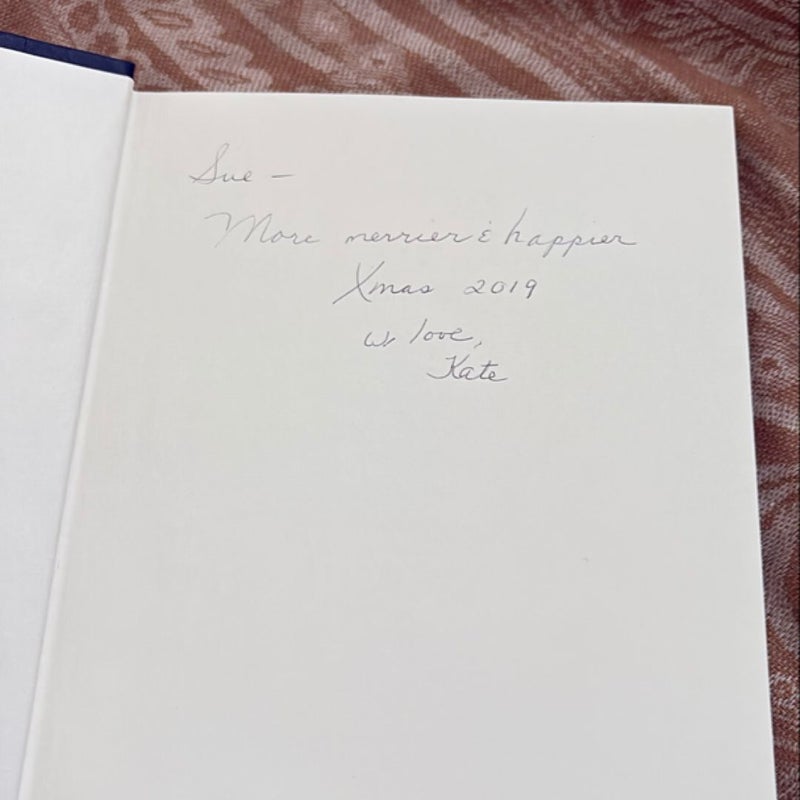 Sue —
More merrier & happier
Xmas 2019
w/ love,
Kate